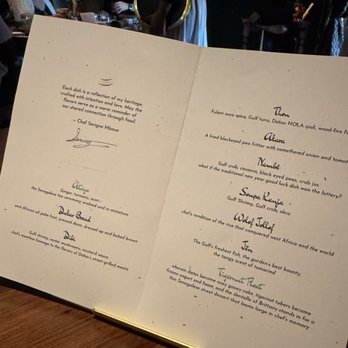 Each dish is a reflection of my heritage,
crafted with intention and love. May the
flavors serve as a warm reminder of
our shared connection through food
- Chef Serigne Mbaye
Ataya
Ginger, hummus,
the Senegalese tea ceremony enlarged and in miniature
Dakar Bread
west African oil palm fruit, pressed down, dressed up and baked brown
Dibi
Gulf shrimp, onion mushrooms, mustard sauce
chef's modern homage to the flavors of Dakar's street grilled meats
Thon
Fulani soya spice, Gulf tuna, Dakar NOLA ajoli, wood-fire
Akara
A fried blackeyed pea fritter with remethered onion and tomato
Nambé
Gulf crab, cassava, black eyed peas, crab jus
what if the traditional new year good luck dish won the lottery?
Soupa Kanja
Gulf Shrimp, Gulf crab, okra
Wolof Jollof
chef's rendition of the rice that conquered west Africa and the world
Jën
The Gulf's freshest fish, the garden's best bounty,
the tangy scent of tamarind
Tigernut Thiakry
wherein dates become cozy gooey cake, tigernut tubers become
frozen yogurt and foam, and the dentelle of Brittany stands for a
Senegalese street dessert that looms large in chef's memory